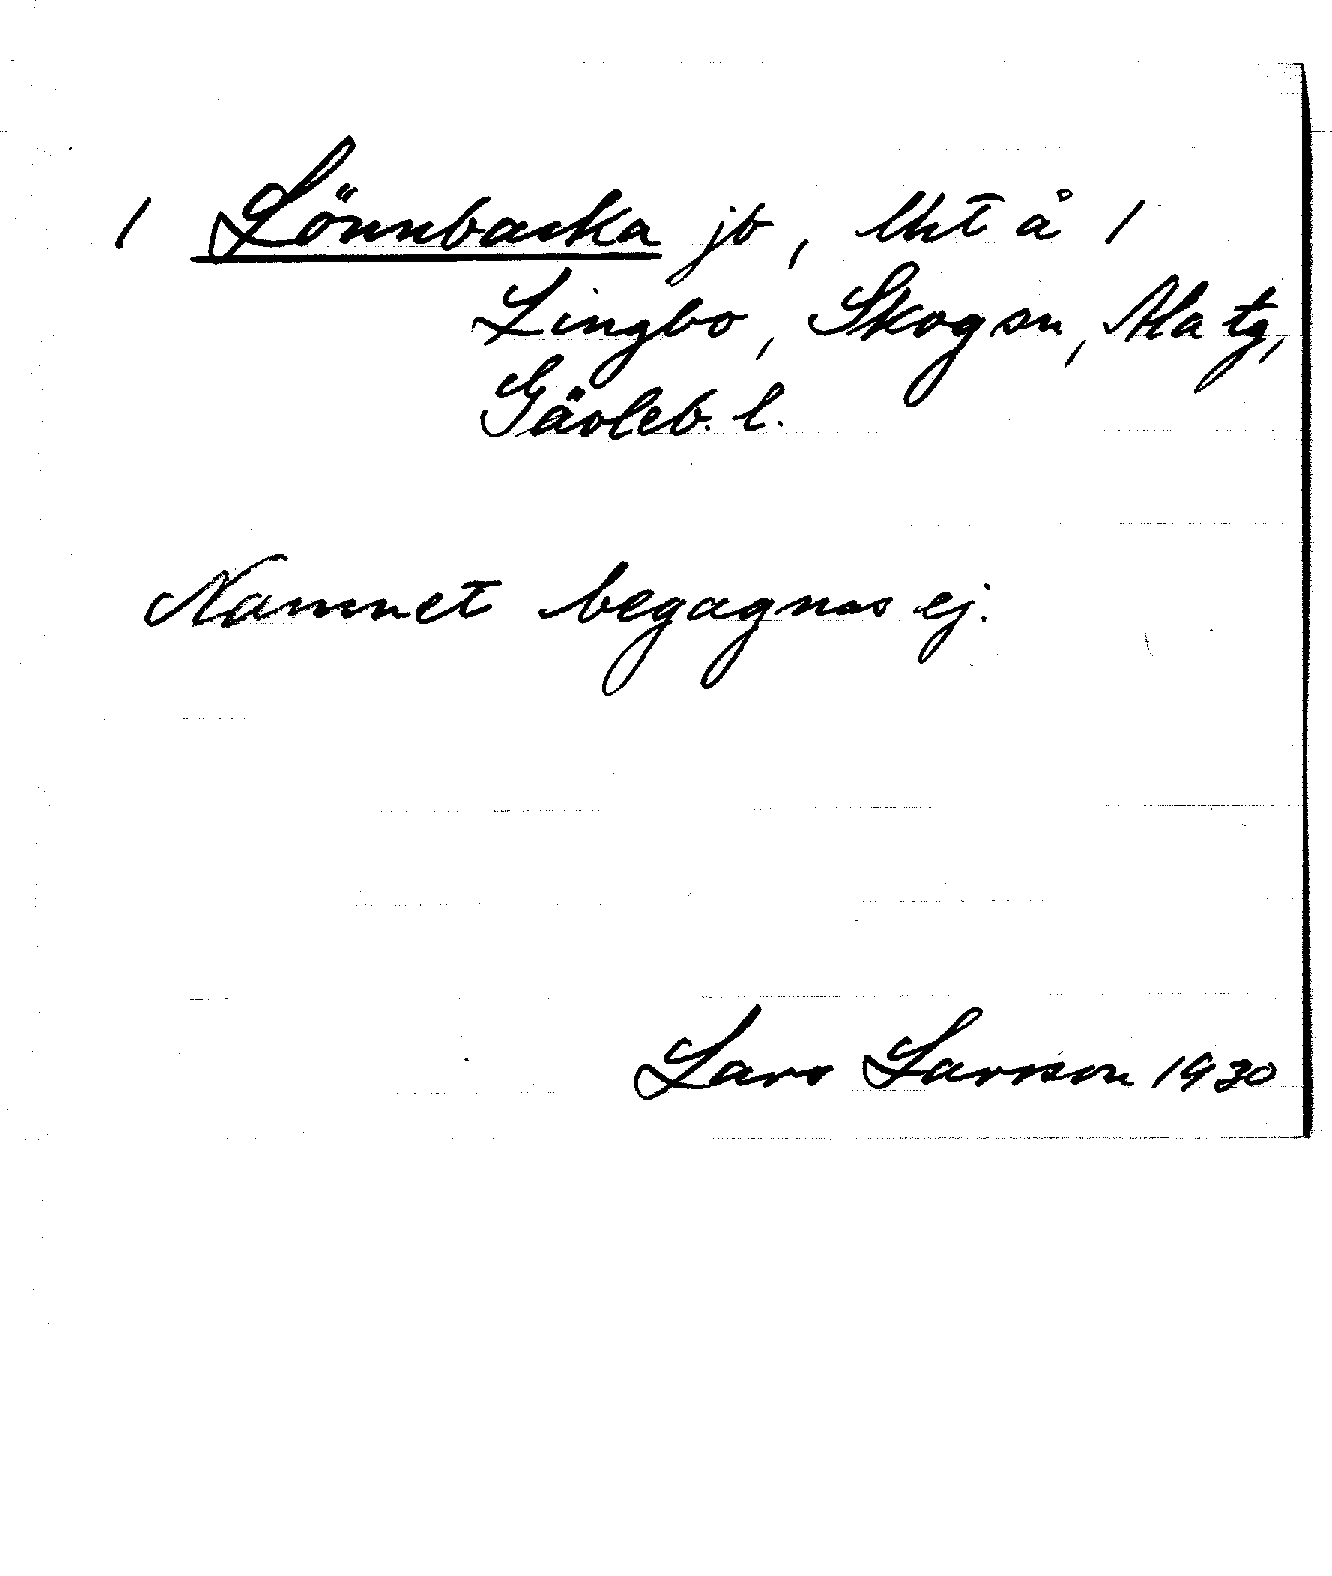 1 Lönnbacka jb, lht å 1
Lingbo, Skogsn, Ala tg,
Gävleb. l.
Namnet begagnas ej.
Lars Larsson 1930